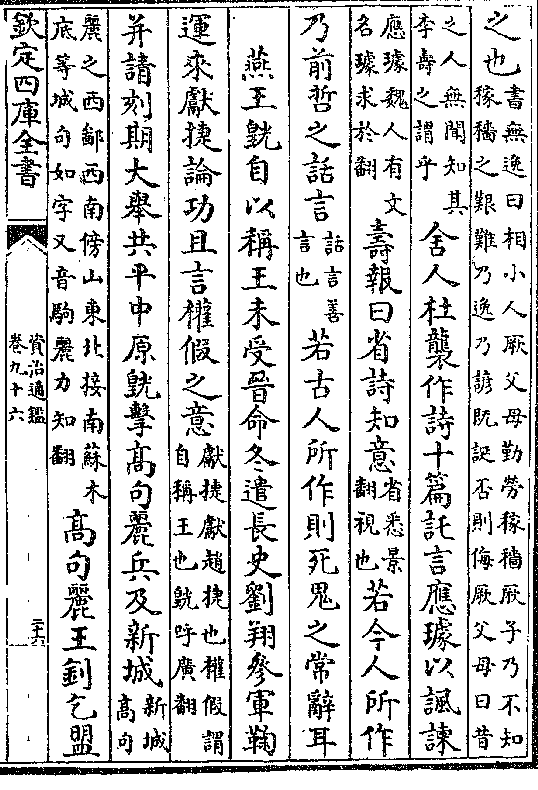 之也書無逸曰相小人厥父母勤勞稼穡厥子乃不知稼穡之艱難乃逸乃諺既誕否則侮厥父母曰昔
之人無聞知其李壽之謂乎舍人杜襲作詩十篇託言應璩以諷諫
應璩魏人有文名璩求於翻壽報曰省詩知意省悉景翻視也若今人所作
乃前哲之話言話言善言也若古人所作則死鬼之常辭耳
燕王皝自以稱王未受晉命冬遣長史劉翔參軍鞠
運來獻捷論功且言權假之意獻捷獻趙捷也權假謂自稱王也皝呼廣翻
并請刻期大舉共平中原皝擊高句麗兵及新城新城高句
麗之西鄙西南傍山東北接南蘇木底等城句如字又音駒麗力知翻高句麗王釗乞盟
欽定四庫全書
資治通鑑
卷九十六
二十六